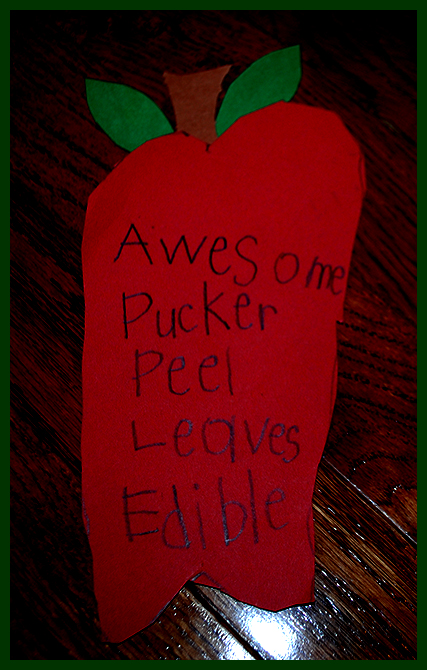 Awesome
Pucker
Peel
Leaves
Edible